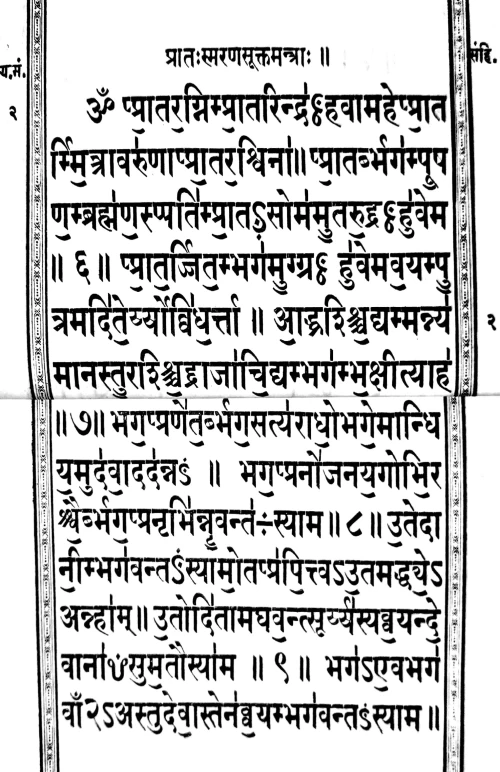 प्रातःस्मरणसूक्तमन्त्राः ॥
य.सं.
संहि.
२
ॐ प्प्रा॒तर॒ग्निम्प्रा॒तरिन्द्र॑ᳪहवामहेप्प्रा॒त
र्म्मि॒त्रावरु॑णाप्प्रा॒तर॒श्विना॑॥ प्प्रा॒तर्ब्भग॑म्पू॒ष
ण॒म्ब्रह्म॑ण॒स्प्पति॑म्प्रा॒तऽसोम॑मु॒तरु॒द्रᳪहु॑वेम
॥ ६ ॥ प्प्रा॒त॒र्ज्जित॒म्भग॑मु॒ग्ग्रᳪ हु॑वेमव॒यम्पु॒
त्रमदि॑ते॒र्य्योवि॑ध॒र्त्ता ॥ आ॒द्ध्रश्श्चि॒द्यम्मन्न्य॑
२
मानस्तु॒रश्श्चि॒द्राजा॑चि॒द्यम्भग॑म्भ॒क्षीत्याह॑
॥७॥ भग॒प्प्रणे॑त॒र्ब्भग॒सत्य॑राधो॒भगे॒मान्धि
य॒मुद॑वा॒दद॑न्नᳪ ॥ भग॒प्प्रनो॑जनय॒गोभि॒र
श्श्वै॒र्ब्भग॒प्प्रनृभि॑न्नृ॒वन्त॑÷स्याम ॥ ८ ॥ उ॒तेदा
नी॒म्भग॑वन्तऽंस्यामो॒तप्प्र॑पि॒त्त्वऽउ॒तमद्ध्ये॒ऽ
अन्न्हा॑म् ॥ उ॒तोदि॑तामघव॒न्त्सूर्य्य॑स्यव॒यन्दे॒
वाना॑ᳪसुम॒तौस्या॑म ॥ ९ ॥ भग॑ऽए॒वभग॑
वाँ२ऽअस्तुदेवा॒स्तेन॑व॒यम्भग॑वन्तऽंस्याम ॥